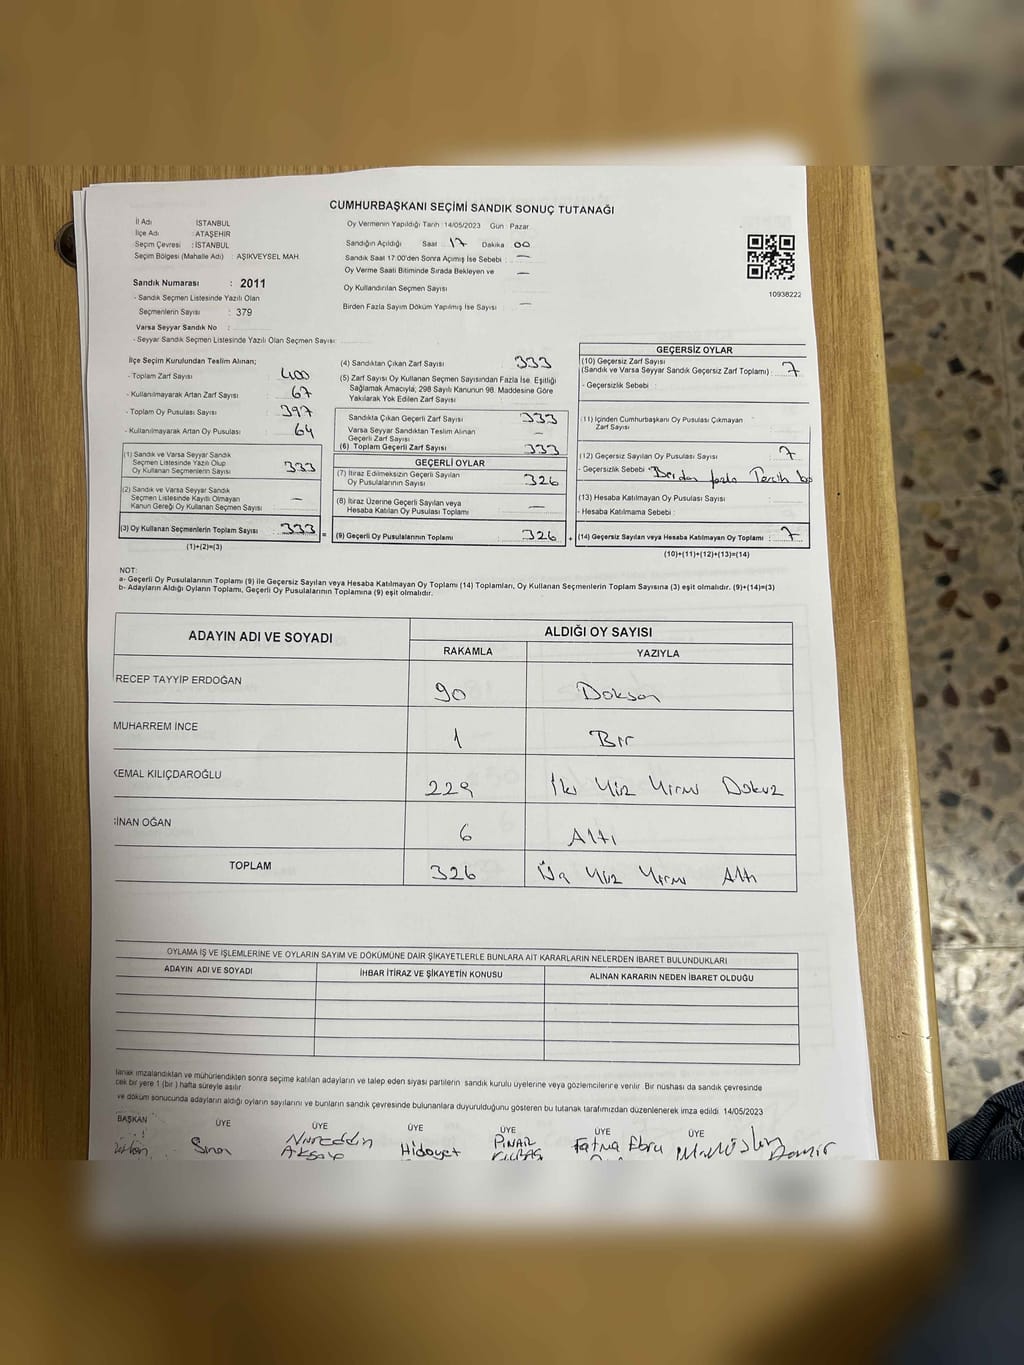 CUMHURBAŞKANI SEÇİMİ SANDIK SONUÇ TUTANAĞI
İl Adı : İSTANBUL
İlçe Adı : ATAŞEHİR
Seçim Çevresi : İSTANBUL
Seçim Bölgesi (Mahalle Adı) : AŞIKVEYSEL MAH.
Sandık Numarası : 2011
- Sandık Seçmen Listesinde Yazılı Olan
Seçmenlerin Sayısı : 379
Varsa Seyyar Sandık No :
- Seyyar Sandık Seçmen Listesinde Yazılı Olan Seçmen Sayısı:
Oy Vermenin Yapıldığı Tarih : 14/05/2023 Gün : Pazar
Sandığın Açıldığı Saat : 17 Dakika : 00
Sandık Saat 17:00'den Sonra Açımış İse Sebebi : —
Oy Verme Saati Bitiminde Sırada Bekleyen ve —
Oy Kullandırılan Seçmen Sayısı
Birden Fazla Sayım Döküm Yapılmış İse Sayısı : —
10938222
İlçe Seçim Kurulundan Teslim Alınan;
- Toplam Zarf Sayısı : 400
- Kullanılmayarak Artan Zarf Sayısı : 67
- Toplam Oy Pusulası Sayısı : 397
- Kullanılmayarak Artan Oy Pusulası : 64
(1) Sandık ve Varsa Seyyar Sandık
Seçmen Listesinde Yazılı Olup
Oy Kullanan Seçmenlerin Sayısı : 333
(2) Sandık ve Varsa Seyyar Sandık
Seçmen Listesinde Kayıtlı Olmayan
Kanun Gereği Oy Kullanan Seçmen Sayısı : —
(3) Oy Kullanan Seçmenlerin Toplam Sayısı : 333
(1)+(2)=(3)
(4) Sandıktan Çıkan Zarf Sayısı : 333
(5) Zarf Sayısı Oy Kullanan Seçmen Sayısından Fazla İse, Eşitliği
Sağlamak Amacıyla; 298 Sayılı Kanunun 98. Maddesine Göre
Yakılarak Yok Edilen Zarf Sayısı :
Sandıkta Çıkan Geçerli Zarf Sayısı : 333
Varsa Seyyar Sandıktan Teslim Alınan
Geçerli Zarf Sayısı : —
(6) Toplam Geçerli Zarf Sayısı : 333
GEÇERLİ OYLAR
(7) İtiraz Edilmeksizin Geçerli Sayılan
Oy Pusulasının Sayısı : 326
(8) İtiraz Üzerine Geçerli Sayılan veya
Hesaba Katılan Oy Pusulası Toplamı : —
(9) Geçerli Oy Pusulalarının Toplamı : 326
GEÇERSİZ OYLAR
(10) Geçersiz Zarf Sayısı
(Sandık ve Varsa Seyyar Sandık Geçersiz Zarf Toplamı) : 7
- Geçersizlik Sebebi :
(11) İçinden Cumhurbaşkanı Oy Pusulası Çıkmayan
Zarf Sayısı :
(12) Geçersiz Sayılan Oy Pusulası Sayısı : 7
- Geçersizlik Sebebi : fazla Tercih
(13) Hesaba Katılmayan Oy Pusulası Sayısı :
- Hesaba Katılmama Sebebi :
(14) Geçersiz Sayılan veya Hesaba Katılmayan Oy Toplamı : 7
(10)+(11)+(12)+(13)=(14)
NOT:
a- Geçerli Oy Pusulalarının Toplamı (9) ile Geçersiz Sayılan veya Hesaba Katılmayan Oy Toplamı (14) Toplamları, Oy Kullanan Seçmenlerin Toplam Sayısına (3) eşit olmalıdır. (9)+(14)=(3)
b- Adayların Aldığı Oyların Toplamı, Geçerli Oy Pusulalarının Toplamına (9) eşit olmalıdır.
ADAYIN ADI VE SOYADI ALDIĞI OY SAYISI
RAKAMLA YAZIYLA
RECEP TAYYİP ERDOĞAN 90 Doksan
MUHARREM İNCE 1 Bir
KEMAL KILIÇDAROĞLU 229 İki Yüz Yirmi Dokuz
SİNAN OĞAN 6 Altı
TOPLAM 326 Üç Yüz Yirmi Altı
OYLAMA İŞ VE İŞLEMLERİNE VE OYLARIN SAYIM VE DÖKÜMÜNE DAİR ŞİKAYETLERLE BUNLARA AİT KARARLARIN NELERDEN İBARET BULUNDUKLARI
ADAYIN ADI VE SOYADI İHBAR İTİRAZ VE ŞİKAYETİN KONUSU ALINAN KARARIN NEDEN İBARET OLDUĞU
imzalandıktan ve mühürlendikten sonra seçime katılan adayların ve talep eden siyasi partilerin sandık kurulu üyelerine veya gözlemcilerine verilir. Bir nüshası da sandık çevresinde
cek bir yere 1 (bir ) hafta süreyle asılır.
ve döküm sonucunda adayların aldığı oyların sayılarını ve bunların sandık çevresinde bulunanlara duyurulduğunu gösteren bu tutanak tarafımızdan düzenlenerek imza edildi. 14/05/2023
BAŞKAN ÜYE ÜYE ÜYE ÜYE ÜYE ÜYE
Sinan Nureddin Hidayet PINAR Fatma Ebru Demir